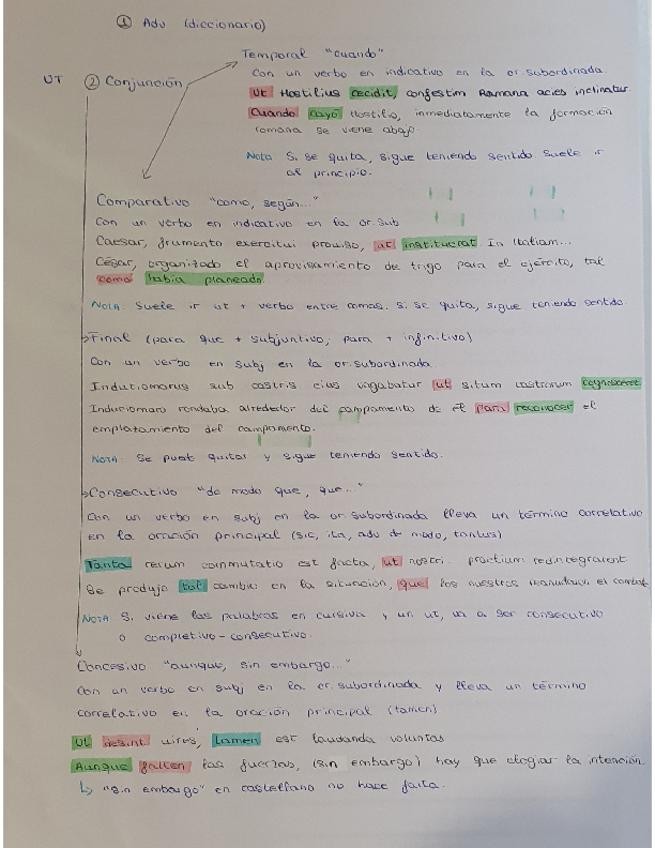 ① Adv (diccionario)
Temporal "cuando"
UT ② Conjunción
Con un verbo en indicativo en la or. subordinada.
Ut Hostilius cecidit, confestim Romana acies inclinatur.
Cuando cayó Hostilio, inmediatamente la formación
romana se viene abajo.
Nota Si se quita, sigue teniendo sentido suele ir
al principio.
Comparativo "como, según..."
Con un verbo en indicativo en la or. sub
Caesar, frumento exercitui proviso, ut instituerat In Italiam...
César, organizado el aprovisamiento de trigo para el ejército, tal
como había planeado.
NOTA: Suele ir ut + verbo entre comas. Si se quita, sigue teniendo sentido.
Final (para que + subjuntivo; para + infinitivo)
Con un verbo en subj en la or. subordinada.
Indutiomarus sub castris eius vagabatur ut situm castrorum cognosceret
Induciomaro rondaba alrededor del campamento de él para reconocer el
emplazamiento del campamento.
NOTA: Se puede quitar y sigue teniendo sentido.
Consecutivo "de modo que, que..."
Con un verbo en subj en la or subordinada lleva un término correlativo
en la oración principal (sic, ita, adv de modo, tantus)
Tanta rerum conmutatio est facta, ut nostri proelium redintegrarent
Se produjo tal cambio en la situación, que los nuestros el
NOTA Si viene las palabras en cursiva y un ut, va a ser consecutivo
o completivo-consecutivo.
Concesivo "aunque, sin embargo..."
Con un verbo en subj en la or. subordinada y lleva un término
correlativo en la oración principal (tamen)
Ut desint vires, tamen est laudanda voluntas
Aunque falten las fuerzas, (sin embargo) hay que elogiar la intención.
↳ "sin embargo" en castellano no hace falta.